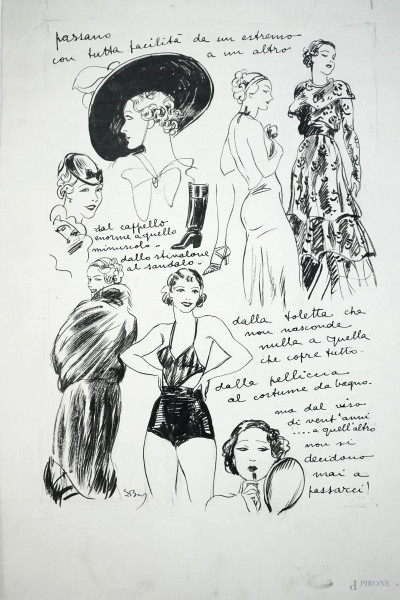 passano
con tutta facilità da un estremo
a un altro
dal cappello
enorme a quello
minuscolo -
dallo stivalone
al sandalo -
dalla toletta che
non nasconde
nulla a quella
che copre tutto -
dalla pelliccia
al costume da bagno -
ma dal viso
di vent'anni
..... a quell'altro
non si
decidono
mai a
passarci!
PIRONE